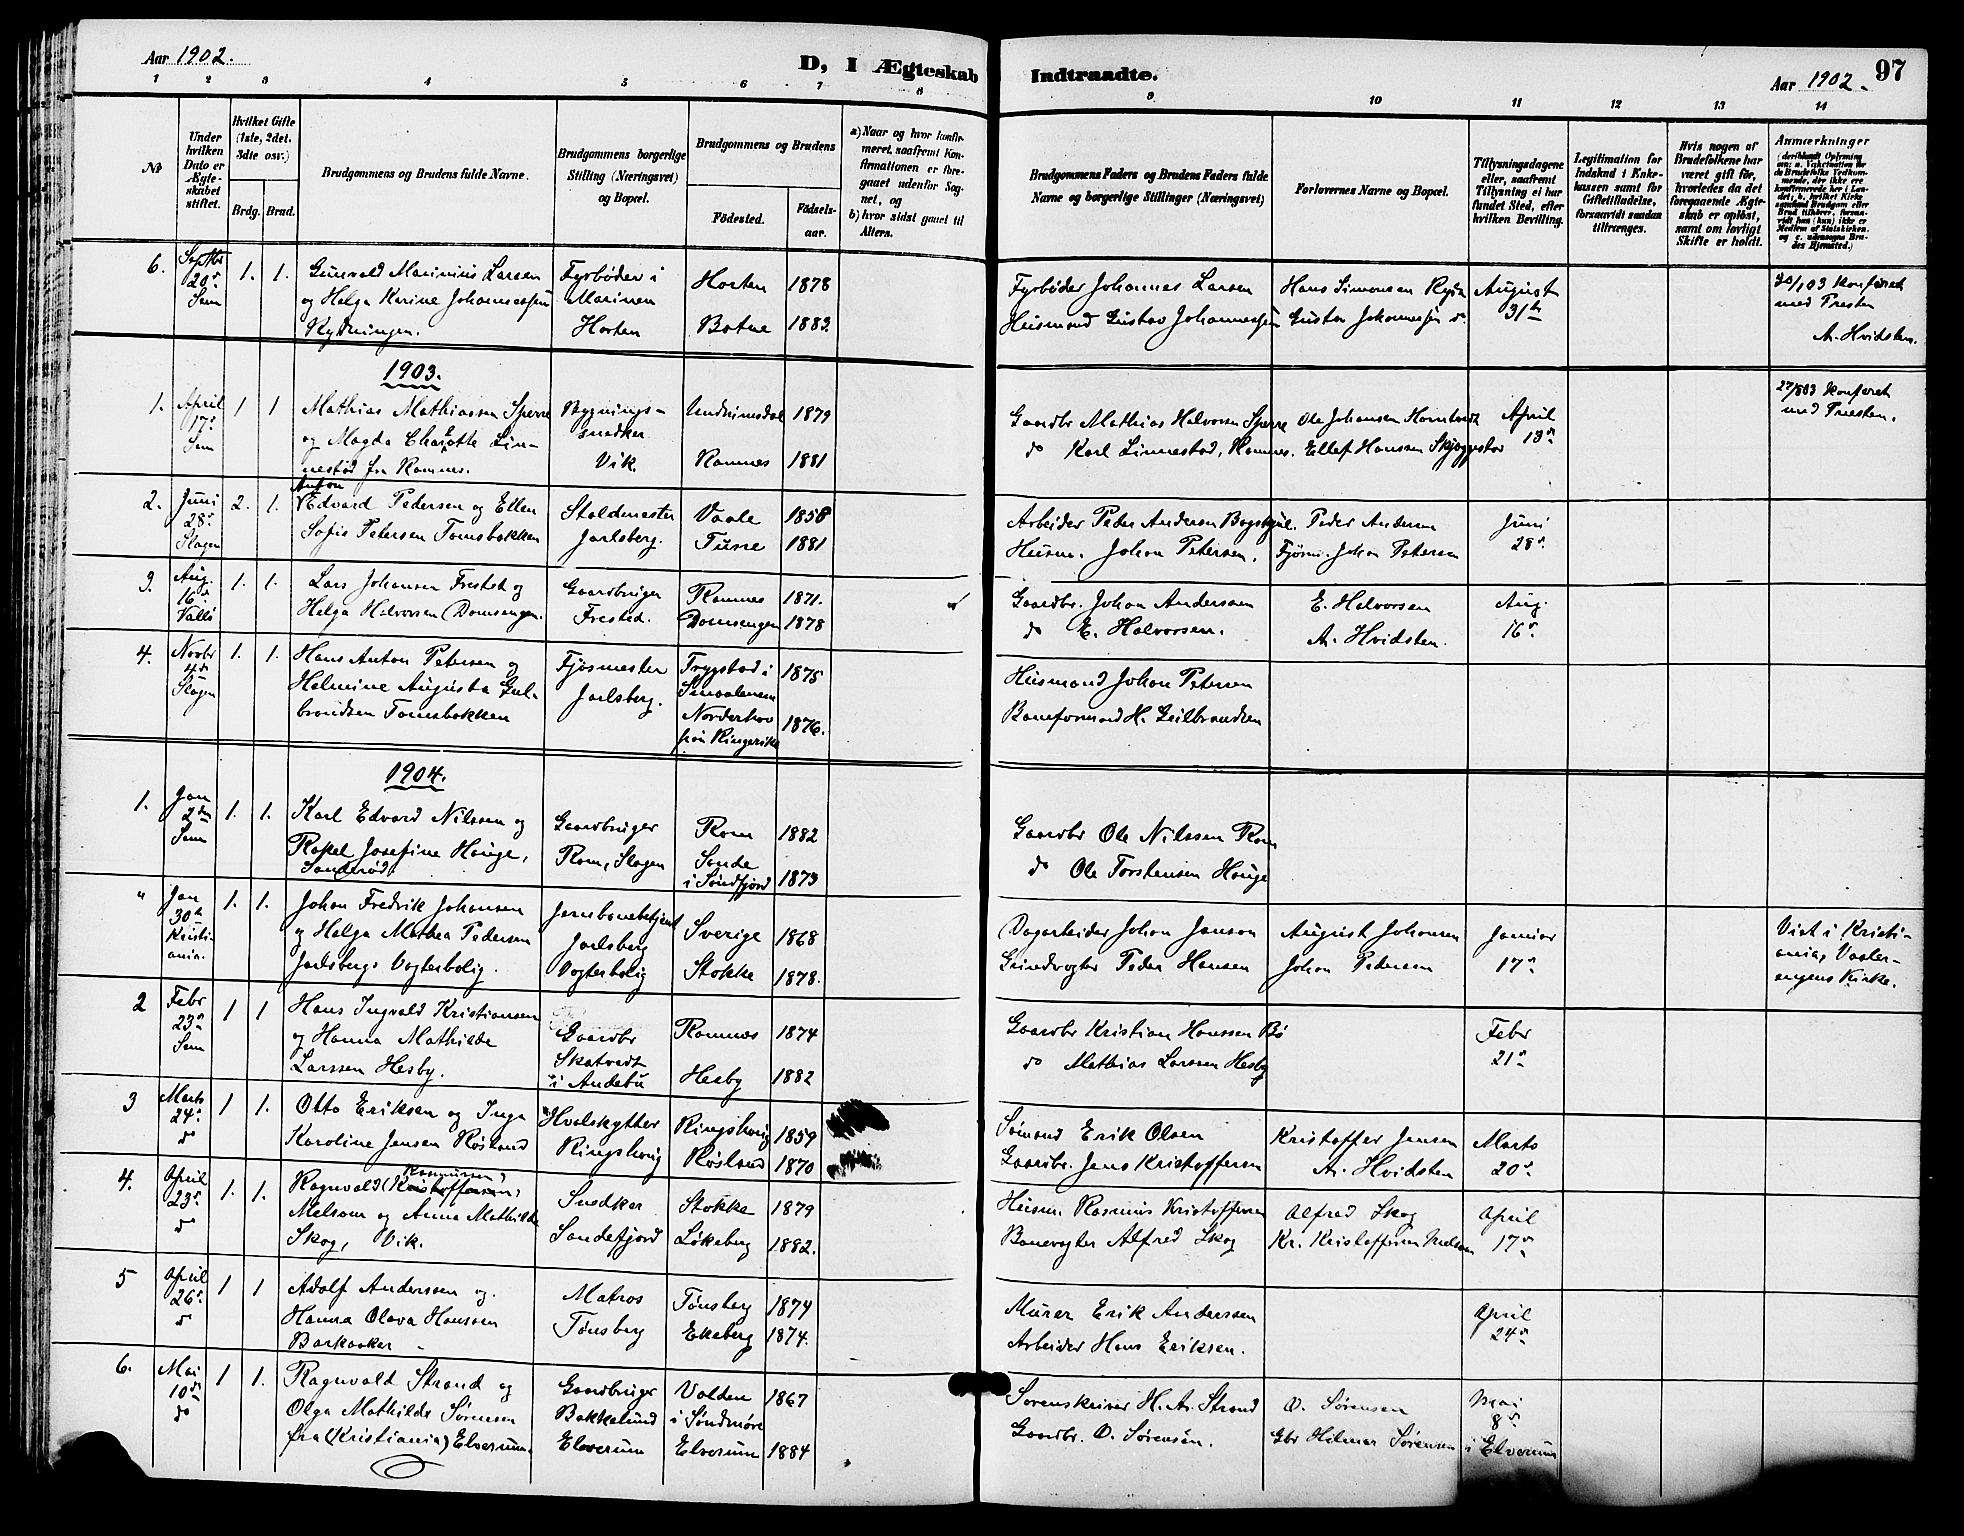 Aar 1902.
D, I Ægteskab Indtraadte.
Aar 1902.
97
1 2 3 4 5 6 7 8 9 10 11 12 13 14
№
Under hvilken Dato er Ægteskabet stiftet.
Hvilket Gifte (1ste, 2det, 3die osv.)
Brdg. Brud.
Brudgommens og Brudens fulde Navne.
Brudgommens borgerlige Stilling (Næringsvei) og Bopæl.
Brudgommens og Brudens
Fødested.
Fødselsaar.
a) Naar og hvor konfirmeret, saafremt Konfirmationen er foregaaet udenfor Sognet, og
b) hvor sidst gaaet til Alters.
Brudgommens Faders og Brudens Faders fulde Navne og borgerlige Stillinger (Næringsvei)
Forlovernes Navne og Bopæl.
Tillysningsdagene eller, saafremt Tillysning ei har fundet Sted, efter hvilken Bevilling.
Legitimation for Indskud i Enkekassen samt for Giftetilladelse, forsaavidt saadan tiltrænges.
Hvis nogen af Brudefolkene har været gift før, hvorledes da det foregaaende Ægteskab er opløst, samt om lovligt Skifte er holdt.
Anmærkninger
6. Septbr 20de Sem 1. 1.
Gunvald Marinius Larsen
og Helga Karine Johannessen
Rydningen.
Fyrbøder i
Marinen
Horten
Horten 1878
Botne 1883.
Fyrbøder Johannes Larsen
Husmand Gustav Johannessen
Hans Simonsen
Gustav Johannessen do
August
31te
konfereret
med Presten
A. Hvidsten.
1903.
1. April 17de Sem 1 1
Mathias Mathiassen Sperre
og Magda Charlotte Lin-
nestad fra Ramnes.
Bygnings-
snedker
Vik.
1879
Ramnes 1881
Gaardbr Mathias Halvorsen Sperre
do Karl Linnestad, Ramnes.
Ole Johansen
Ellef Hanssen Skjeggestad
April
13de
27/8 03 konfereret
med Presten.
2. Juni 28de Slagen 2. 1.
Anton
Edvard Pedersen og Ellen
Sofie Petersen Tomsbakken
Staldmester
Jarlsberg.
Vaale 1858
1881
Arbeider Peder Andersen
Husm. Johan Petersen.
Peder Andersen
Johan Petersen
Juni
28de
3. Aug. 16de Vallø 1. 1.
Lars Johansen Frested og
Helga Halvorsen (Domsengen.
Gaardbruger
Frested.
Ramnes 1871.
Domsengen 1878
Gaardbr. Johan Anderssen
do E. Halvorsen.
E. Halvorsen
A. Hvidsten.
Aug.
16de
4. Novbr 4de Slagen 1. 1.
Hans Anton Petersen og
Helmine Augusta Gul-
brandsen Tomsbakken
Fjøsmester
Jarlsberg.
Trygstad i
Smaalenene
1875
Norderhov
paa Ringerike
1876.
Husmand Johan Petersen
Baneformand H. Gulbrandsen
1904.
1. Jan 2den Sem 1. 1.
Karl Edvard Nilssen og
Rakel Josefine Hauge,
Sanderød.
Gaardbruger
Rom, Slagen
Rom 1882
Sande
i Søndfjord 1873
Gaardbr Ole Nilssen Rom
do Ole Torstensen Hauge
" Jan 30te Kristi-
ania. 1. 1.
Johan Fredrik Johansen
og Helga Mathea Pedersen
Jarlsbergs Vogterbolig.
Jernbanebetjent
Jarlsberg
Vogterbolig
Sverige 1868
Stokke 1878.
Dagarbeider Johan Janson
Grindvogter Peder Hansen
August Johansen
Johan Pedersen
Januar
17de
Viet i Kristi-
ania, Vaaler-
engens Kirke.
2 Febr 23de Sem 1 1
Hans Ingvald Kristiansen
og Hanna Mathilde
Larssen Hesby.
Gaardbr
Skatvedt
i Andebu
Ramnes 1874
Hesby 1882
Gaardbr Kristian Hanssen Bø
do Mathias Larssen Hesby
Febr
21de
3 Marts 24de do 1 1.
Otto Eriksen og Inga
Karoline Jensen Røsland
Hvalskytter
Ringshoug
Ringshoug 1859
Røsland 1870
Sømand Erik Olsen
Gaardbr. Jens Kristoffersen
Kristoffer Jensen
A. Hvidsten
Marts
20de
4. April 23de do 1. 1.
Rasmussen,
Ragnvald (Kristoffersen,
Melsom og Anna Mathilde
Skog, Vik.
Snedker
Sandefjord
Stokke 1879
Løkeberg 1882.
Husm. Rasmus Kristoffersen
Banevogter Alfred Skog
Alfred Skog
Kr. Kristoffersen Melsom
April
17de
5 April 26de do 1 1
Adolf Anderssen og
Hanna Olava Hanssen
Barkaaker
Matros
Tønsberg
Tønsberg 1874
Ekeberg 1874.
Murer Erik Anderssen
Arbeider Hans Eriksen.
April
24de
6. Mai 10de do 1 1.
Ragnvald Strand og
Olga Mathilde Sørensen
fra (Kristiania) Elverum.
Gaardbruger
Bakkelund
Elverum
Volden
i Søndmøre
1867
Elverum 1884
Sorenskriver H. A. Strand
Gaardbr. O. Sørensen.
O. Sørensen
Gbr Hilmar Sørensen
Mai
8de
i Elverum